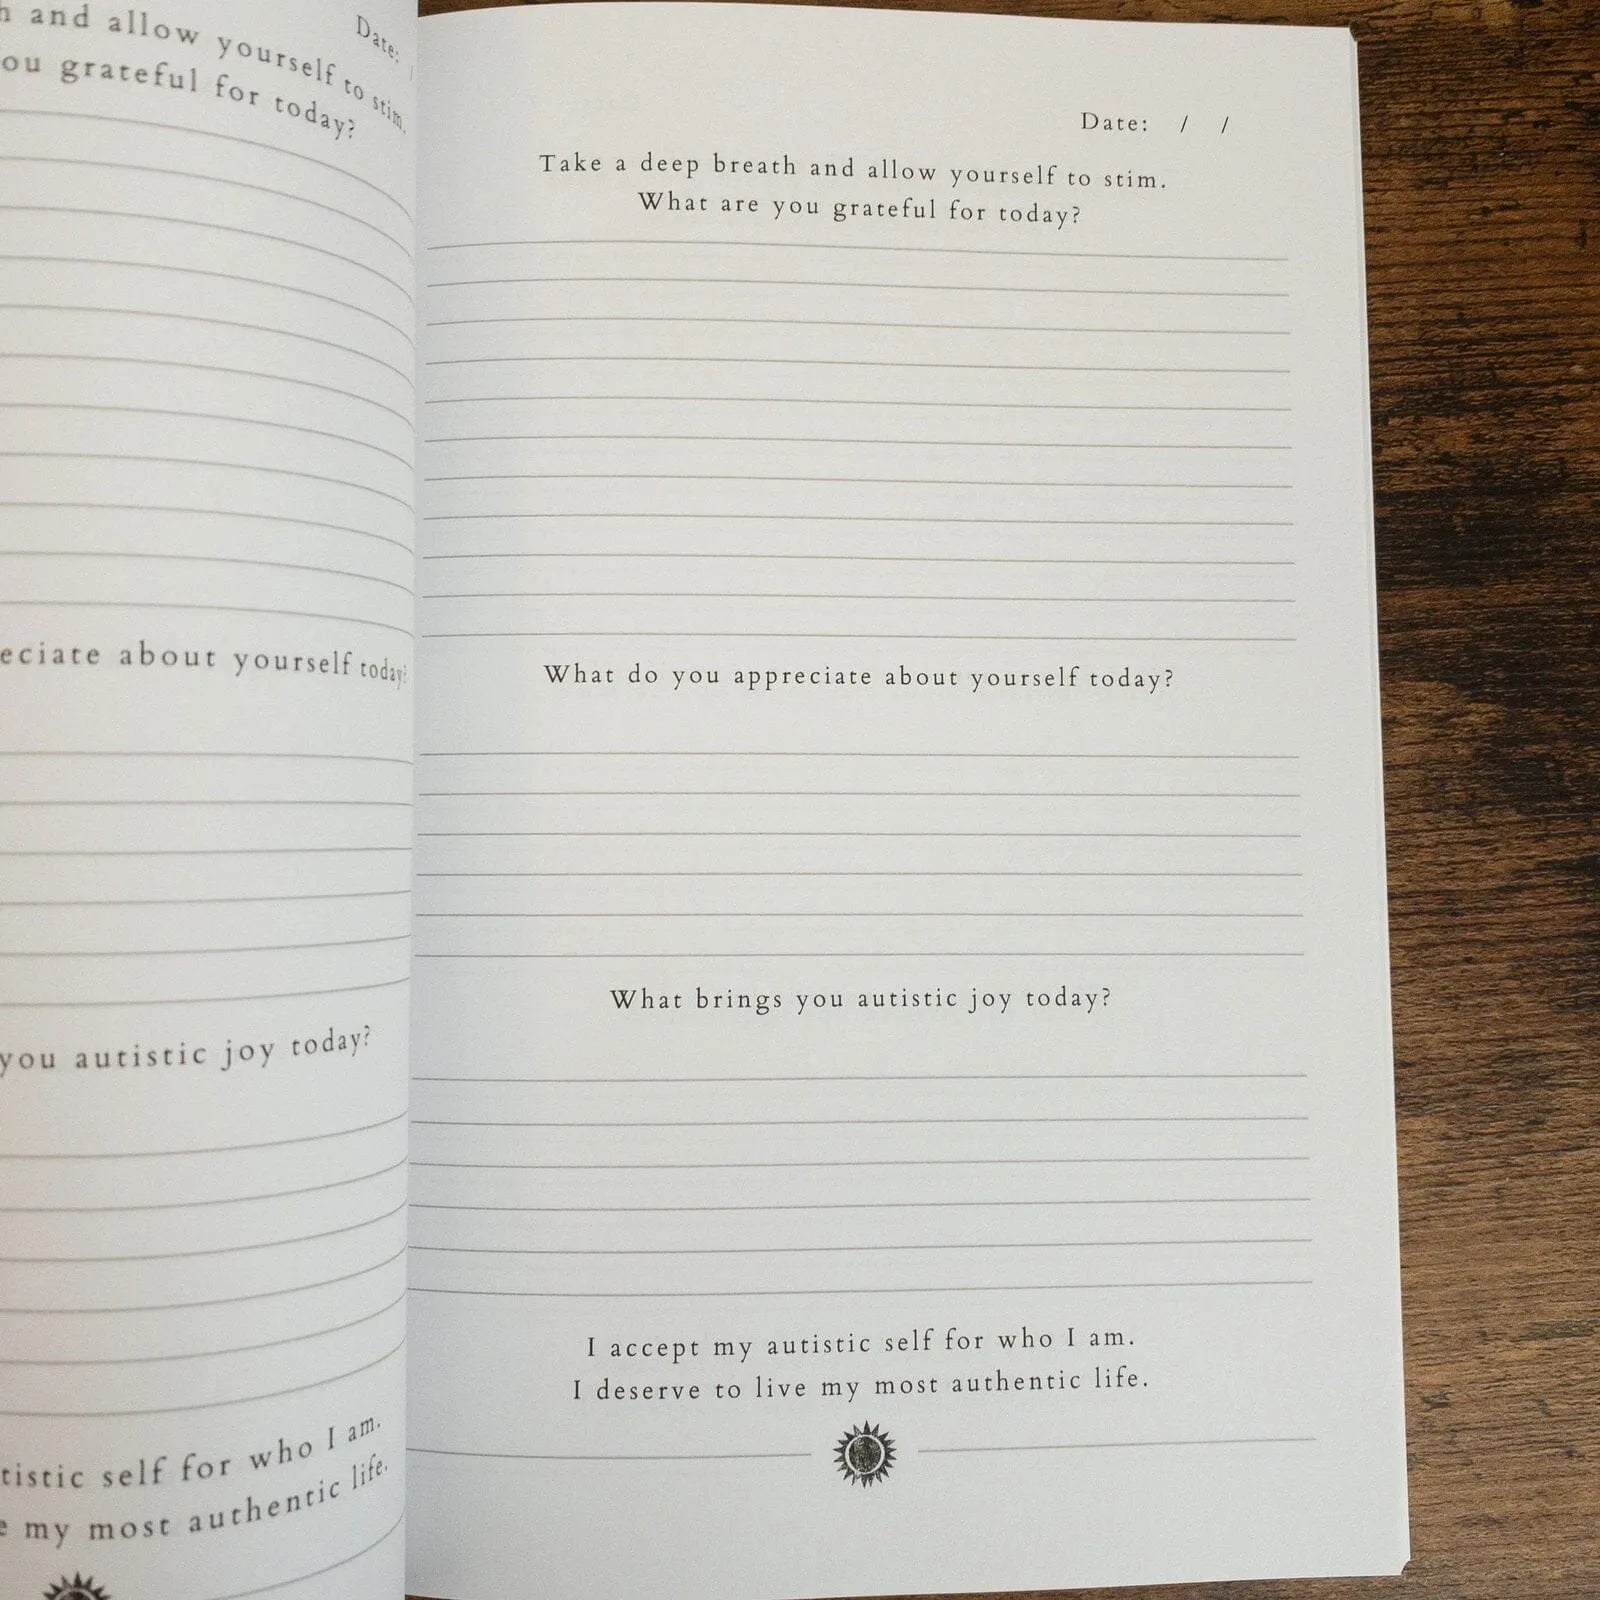 Date:
and allow yourself to stim.
ou grateful for today?
eciate about yourself today?
you autistic joy today?
tistic self for who I am.
e my most authentic life.
Date: / /
Take a deep breath and allow yourself to stim.
What are you grateful for today?
What do you appreciate about yourself today?
What brings you autistic joy today?
I accept my autistic self for who I am.
I deserve to live my most authentic life.